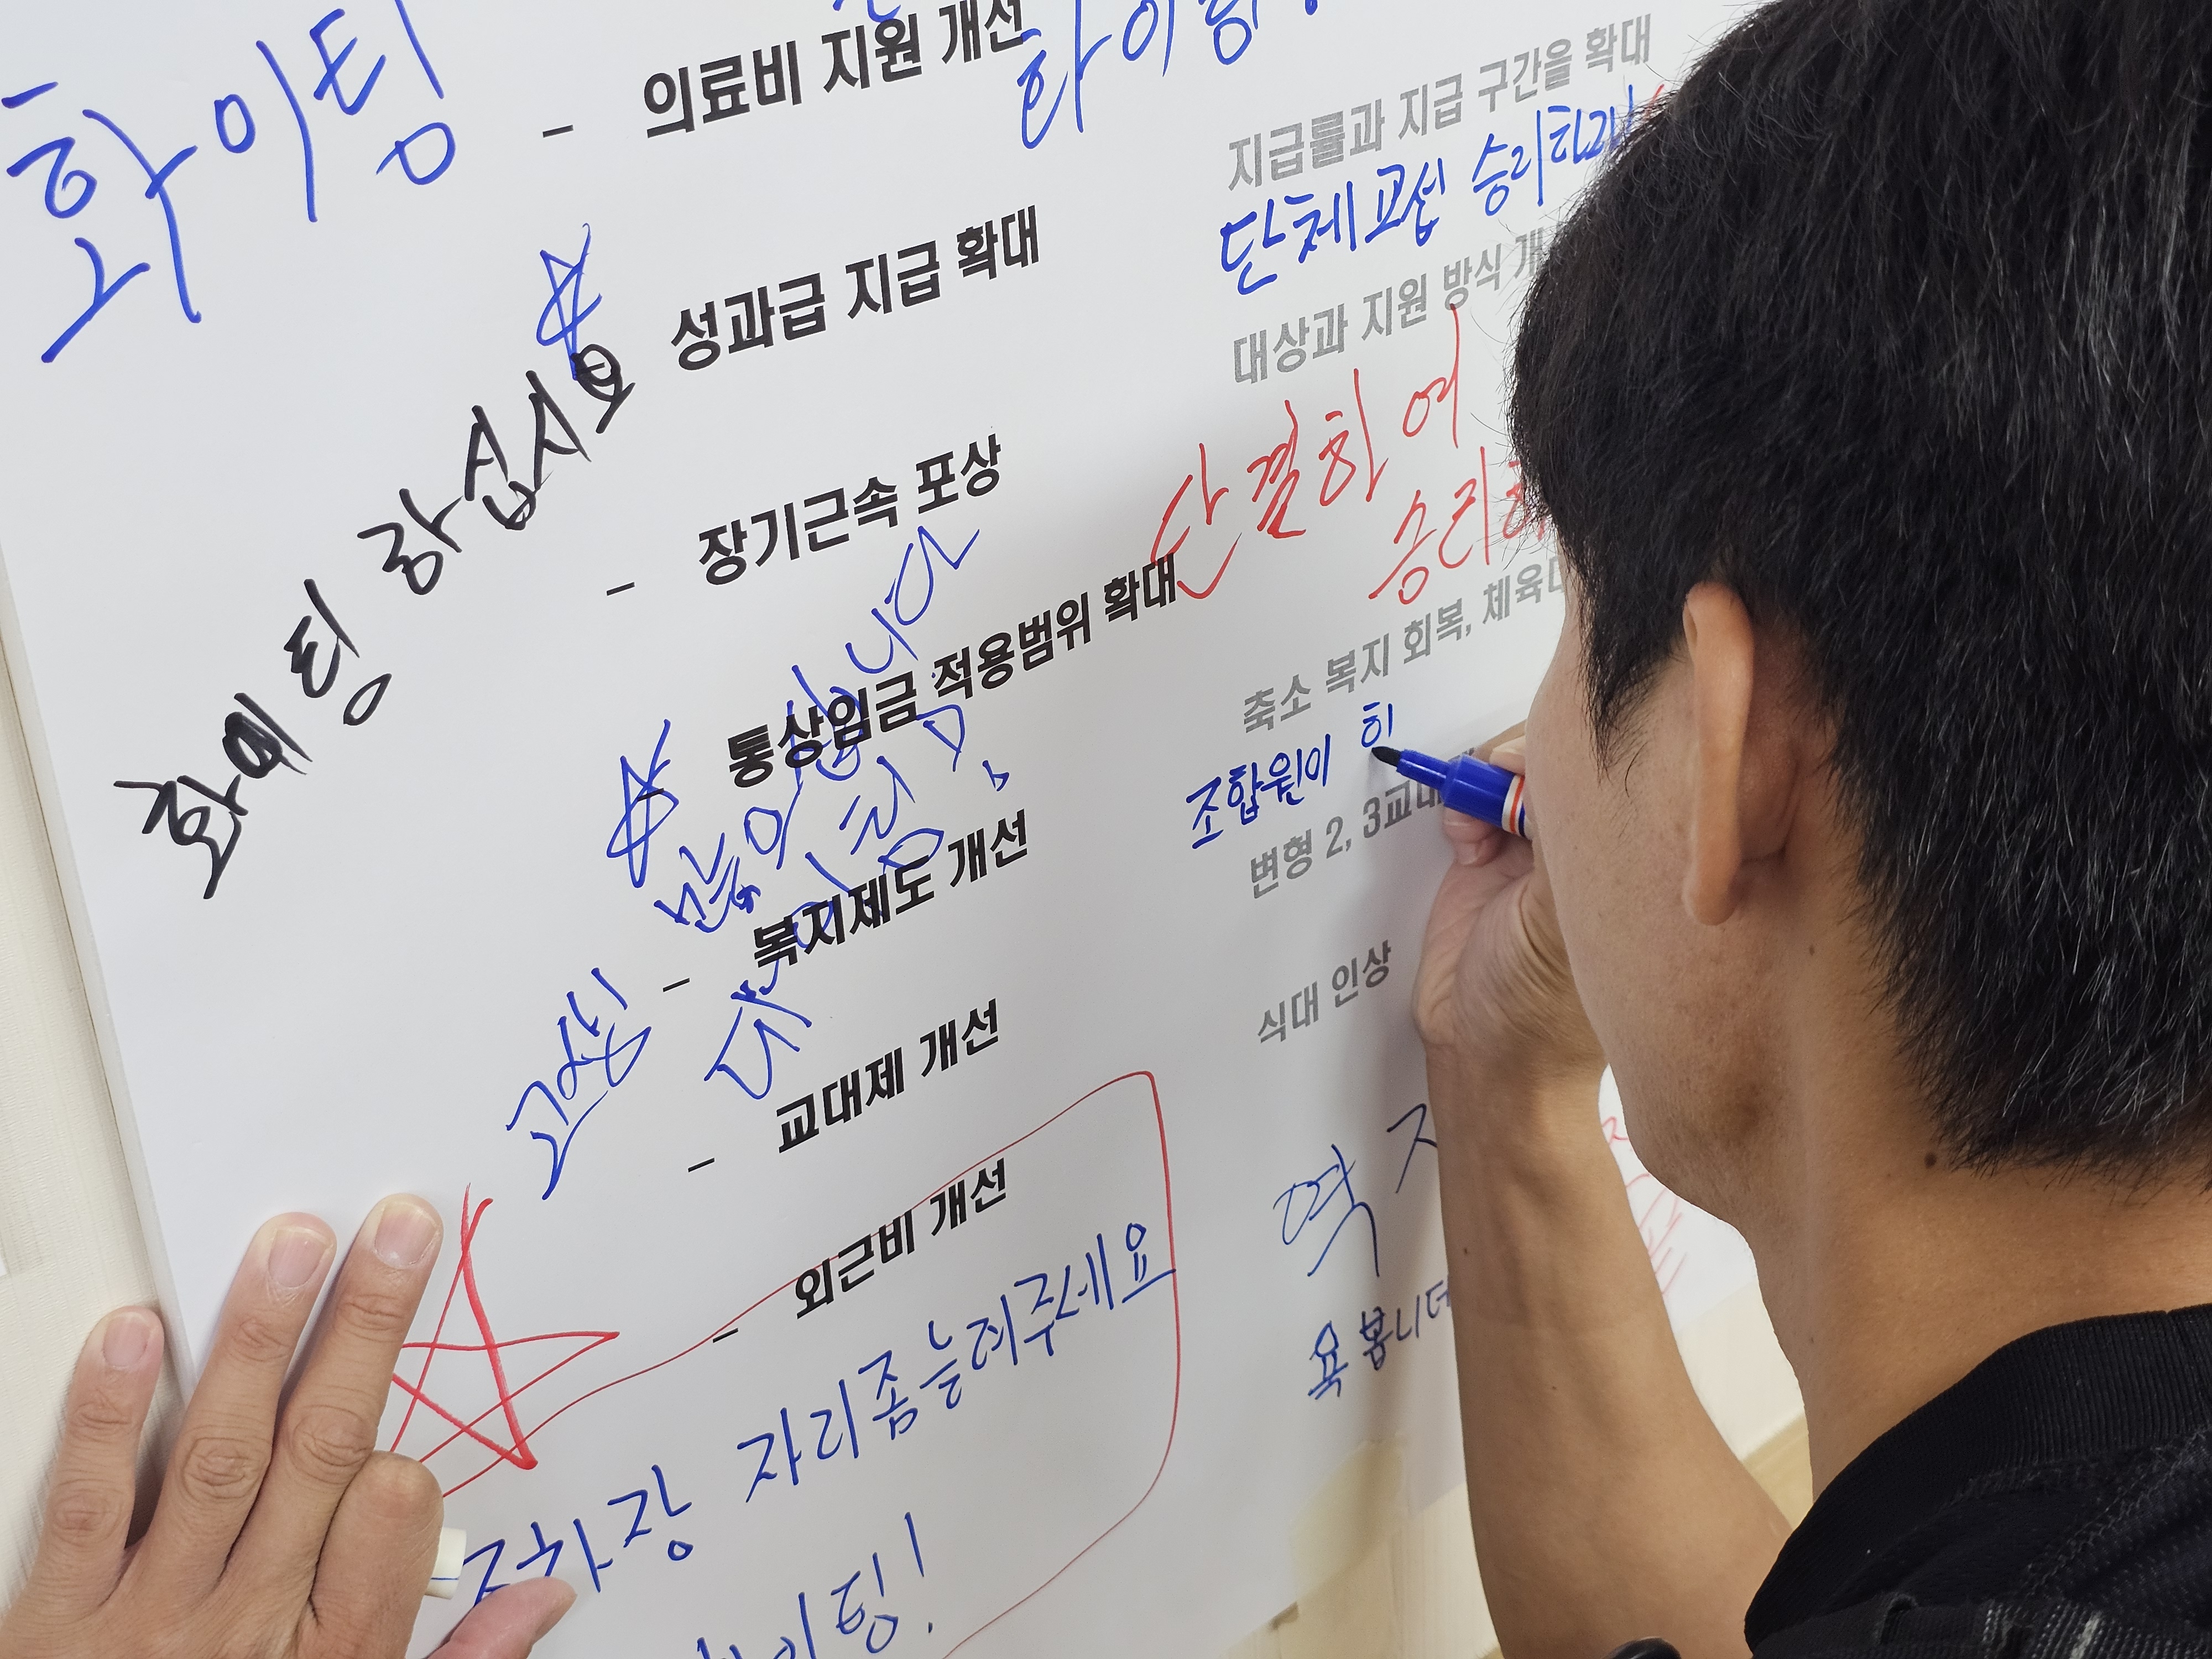 화이팅
의료비 지원 개선
화이팅
지급률과 지급 구간을 확대
단체교섭 승리
성과급 지급 확대
대상과 지원 방식
화이팅 하십시요
단결하여
승리
장기근속 포상
통상임금 적용범위 확대
축소 복지 회복, 체육
조합원이 히
많이
복지제도 개선
변형 2, 3교대
고생
교대제 개선
식대 인상
외근비 개선
욕봅니더
주차장 자리좀늘려주세요
이팅!